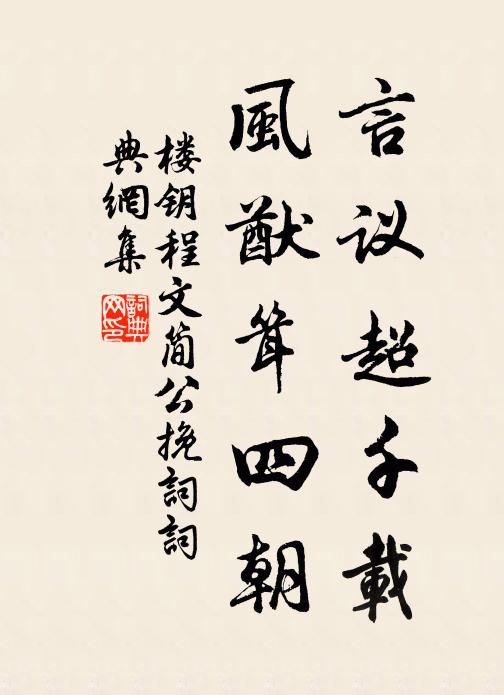 言议超千載
風猷耸四朝
楼钥程文简公挽詞詞
典網集
詞典网印